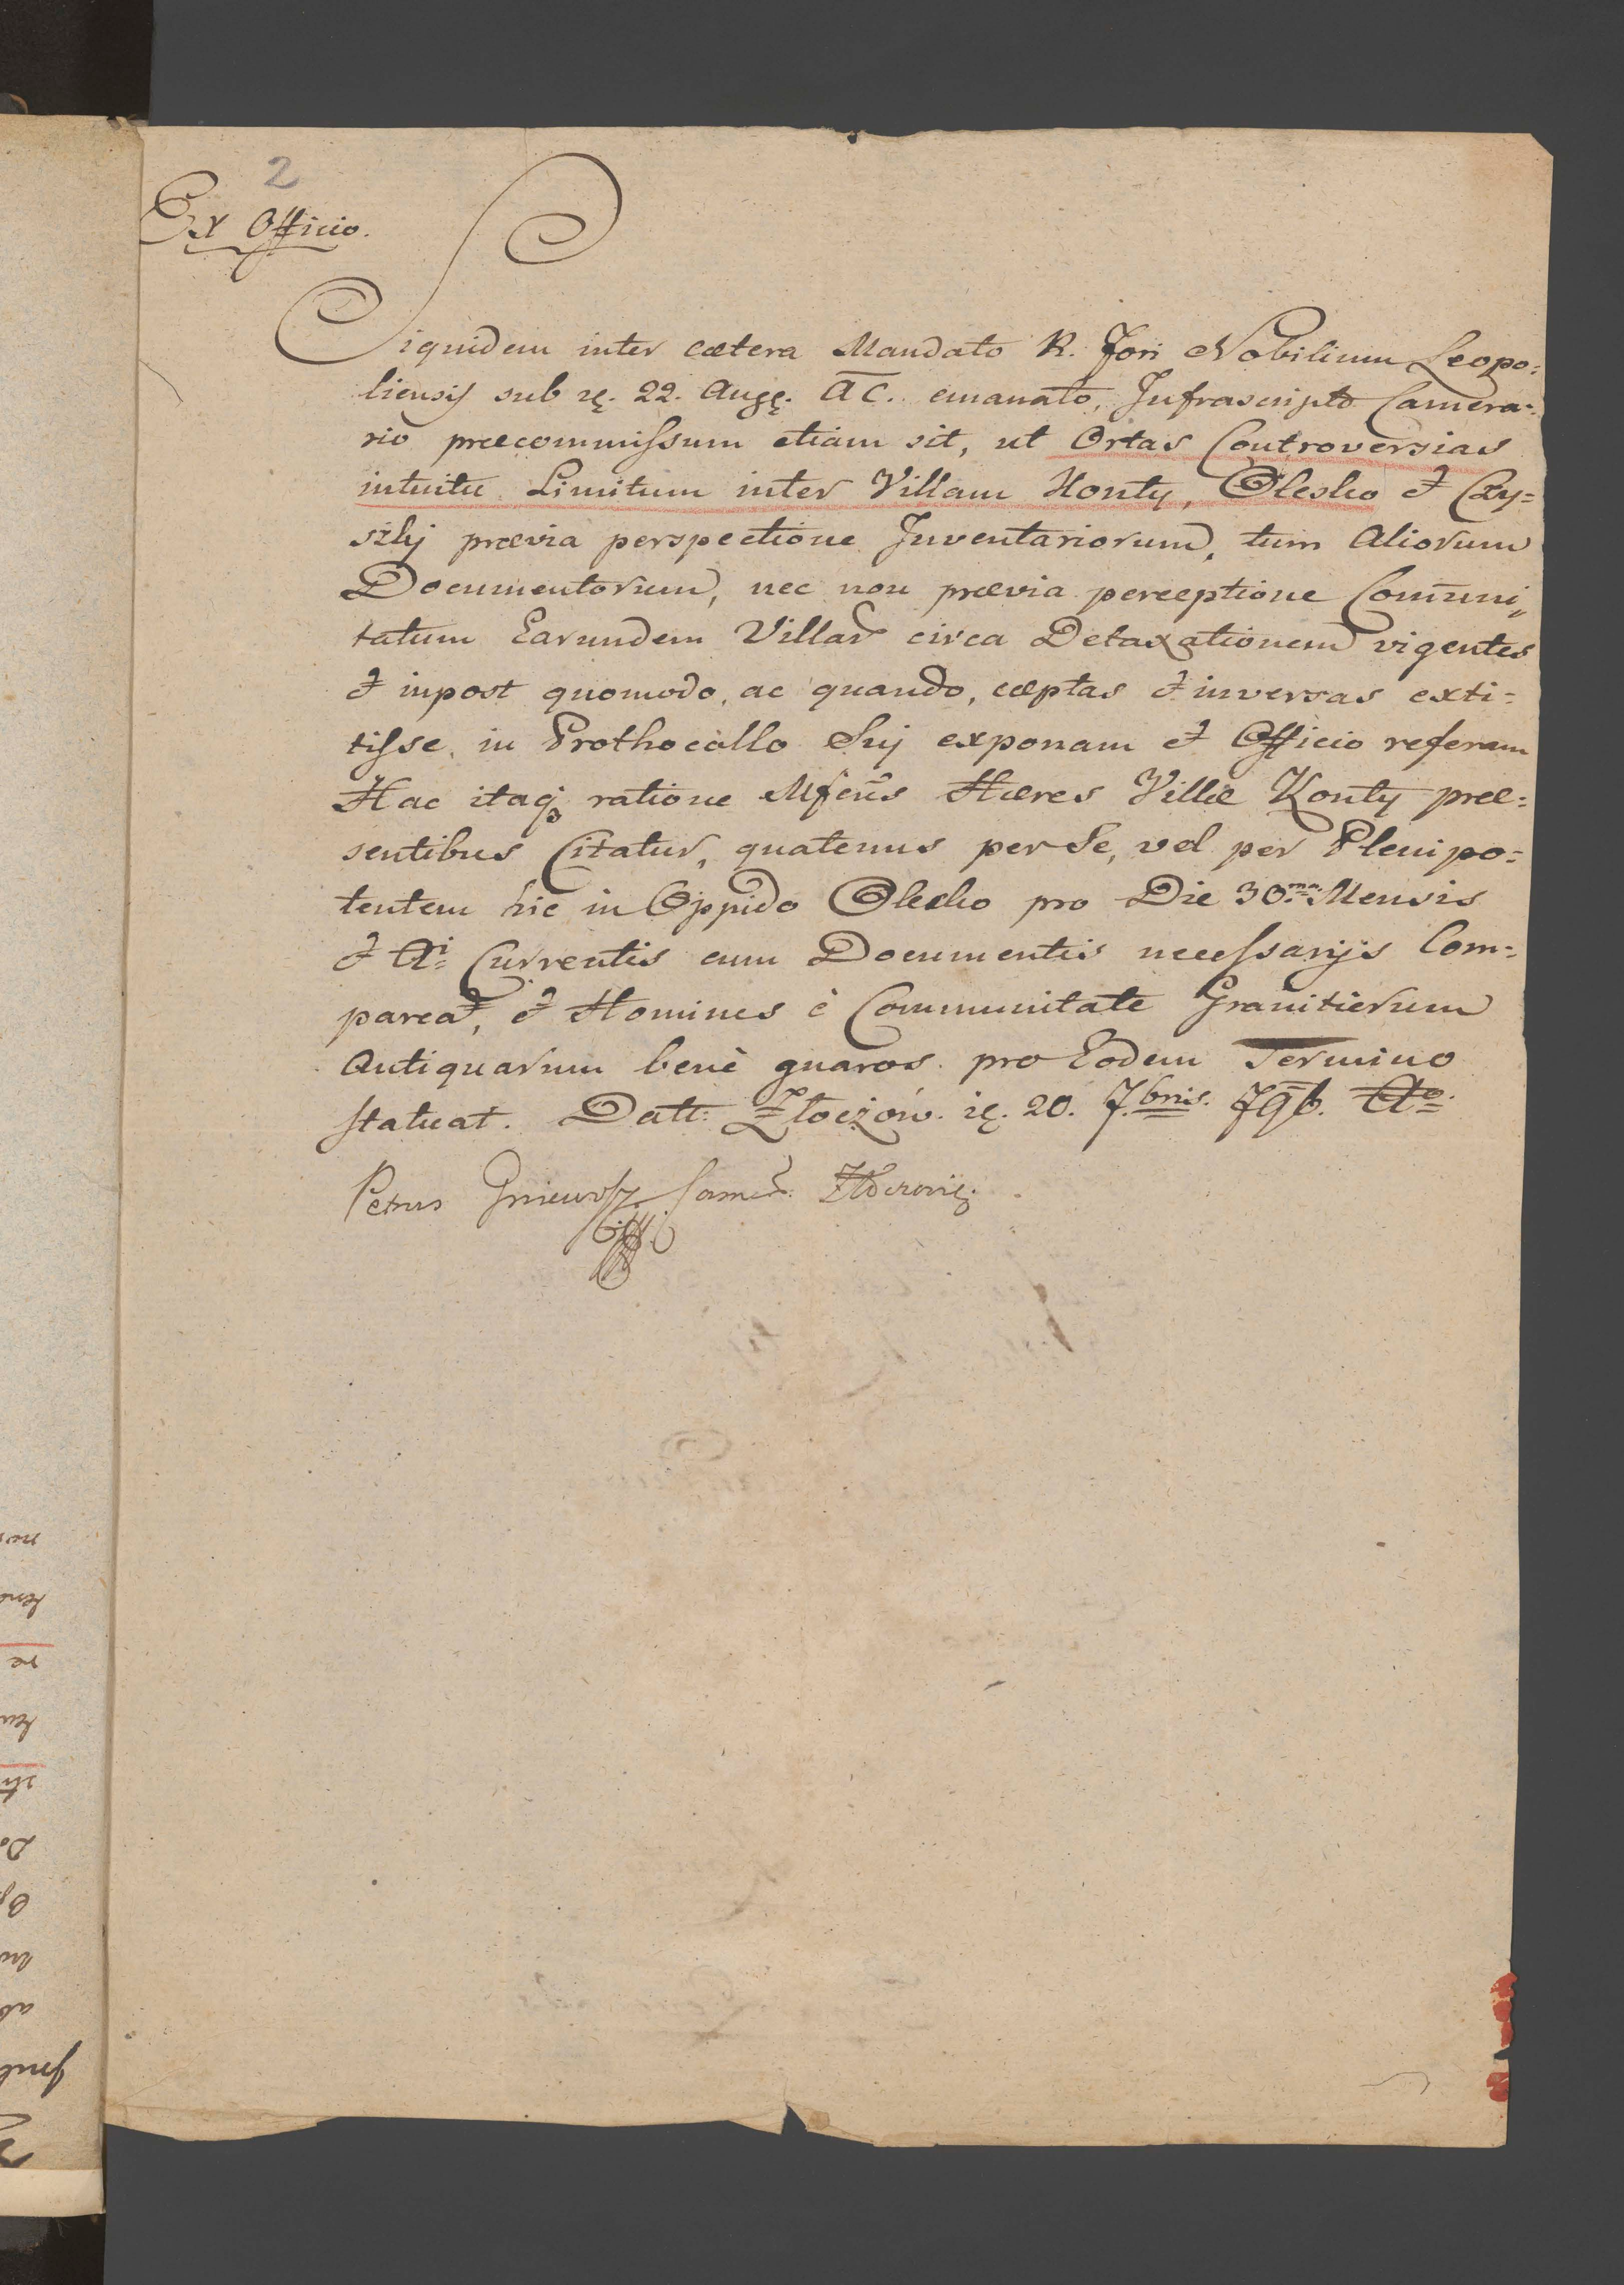 2
Ex Officio.
Siquidem inter cætera Mandato R. Fori Nobilium Leopo=
liensis sub 22. Aug. A C. emanato, Infrascripto Camera=
rio præcommissum etiam sit, ut Ortas Controversias
intuitu Limitum inter Villam Konty, Olesko et Czy=
szki prævia perspectione Inventariorum, tum Aliorum
Documentorum, nec non prævia perceptione Com̄uni=
tatum Earundem Villar circa Detaxationem vigentes
et inpost quomodo, ac quando, cæptas et inversas exti=
tisse, in Prothocollo Suj exponam et Officio referam
Hac itaq ratione Mfcus Hæres Villæ Konty præ=
sentibus Citatur, quatenus per Se, vel per Plenipo=
tentem hic in Oppido Olesko pro Die 30ma Mensis
et Ai Currentis cum Documentis necessarijs Com=
pareat, et Homines è Communitate Granitierum
Antiquarum benè gnaros pro Eodem Termino
statuat. Datt: Złoczów 20. 7bris. 796. Ao
Petrus Gniewosz Camer.